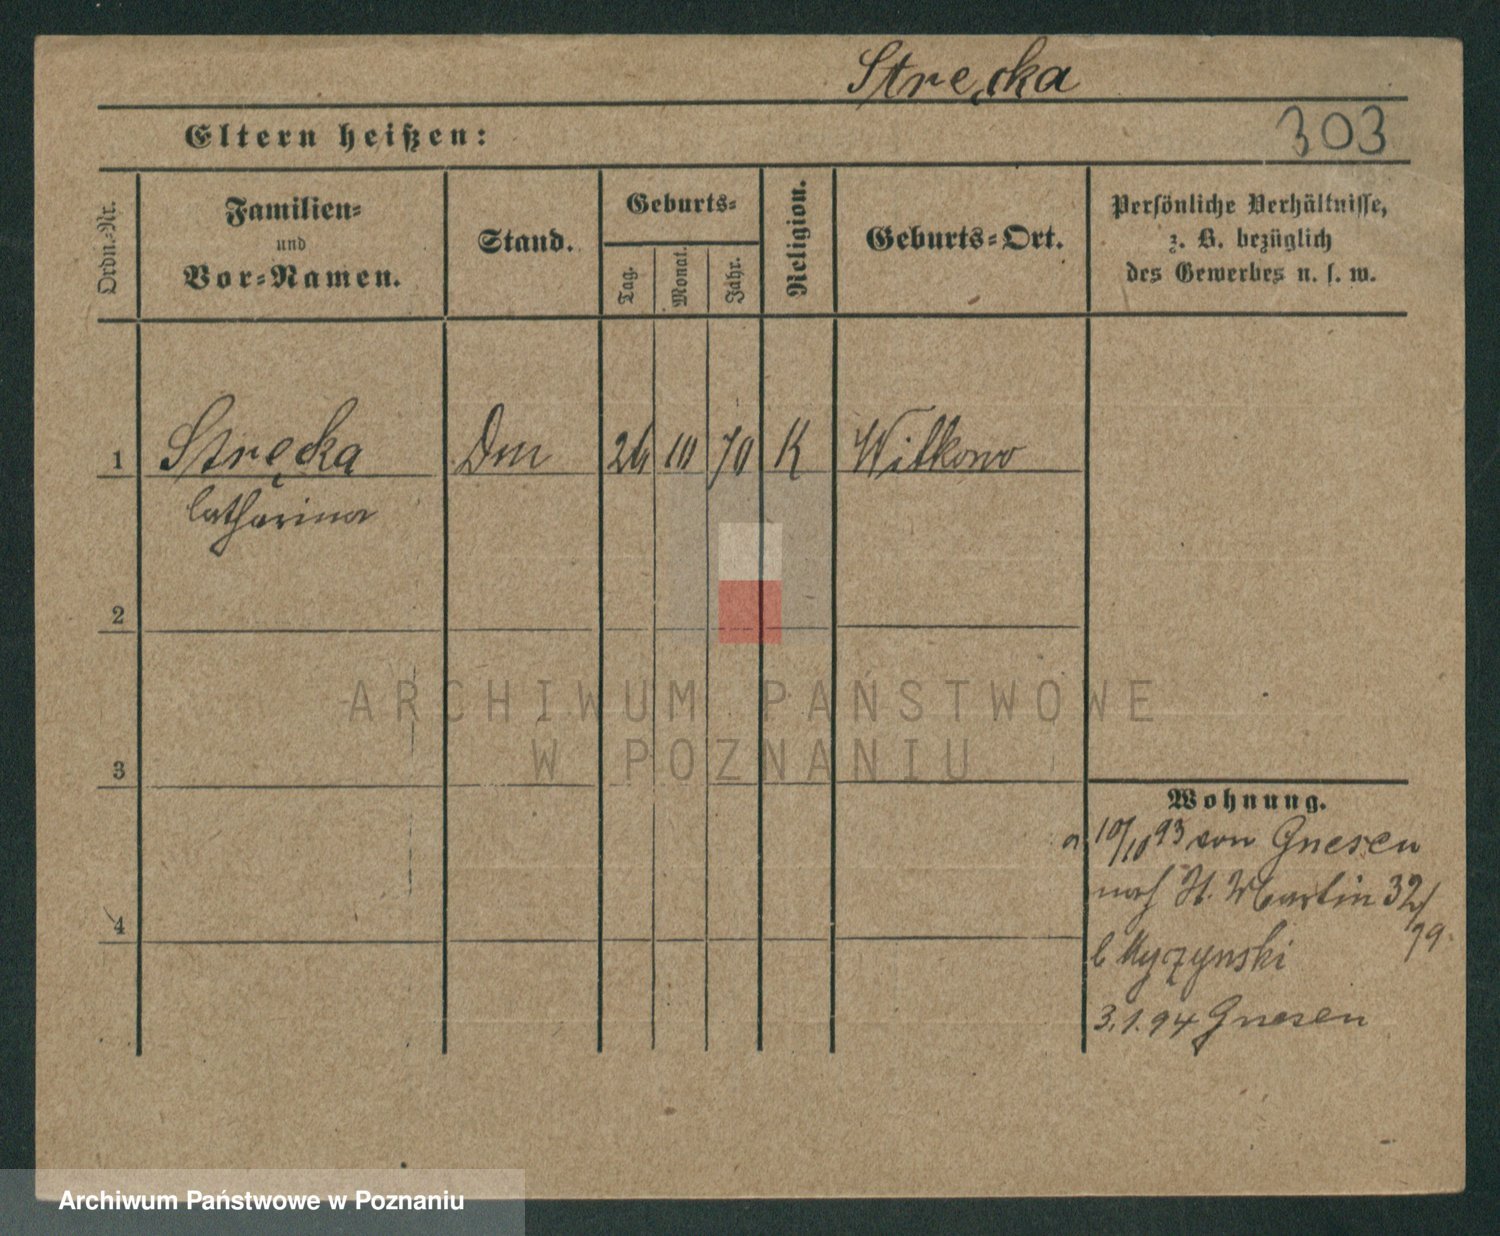 Stręcka
303
Eltern heißen:
Ordn.-Nr.
Familien-
und
Vor-Namen.
Stand.
Geburts-
Tag.
Monat.
Jahr.
Religion.
Geburts-Ort.
Persönliche Verhältnisse,
z. B. bezüglich
des Gewerbes u. s. w.
1 Stręcka
Catharina
26 10 70 K Witkowo
2
3
4
Wohnung.
10/10 93 von Gnesen
nach St. Martin 32/
79
3.1.94 Gnesen
ARCHIWUM PAŃSTWOWE
W POZNANIU
Archiwum Państwowe w Poznaniu